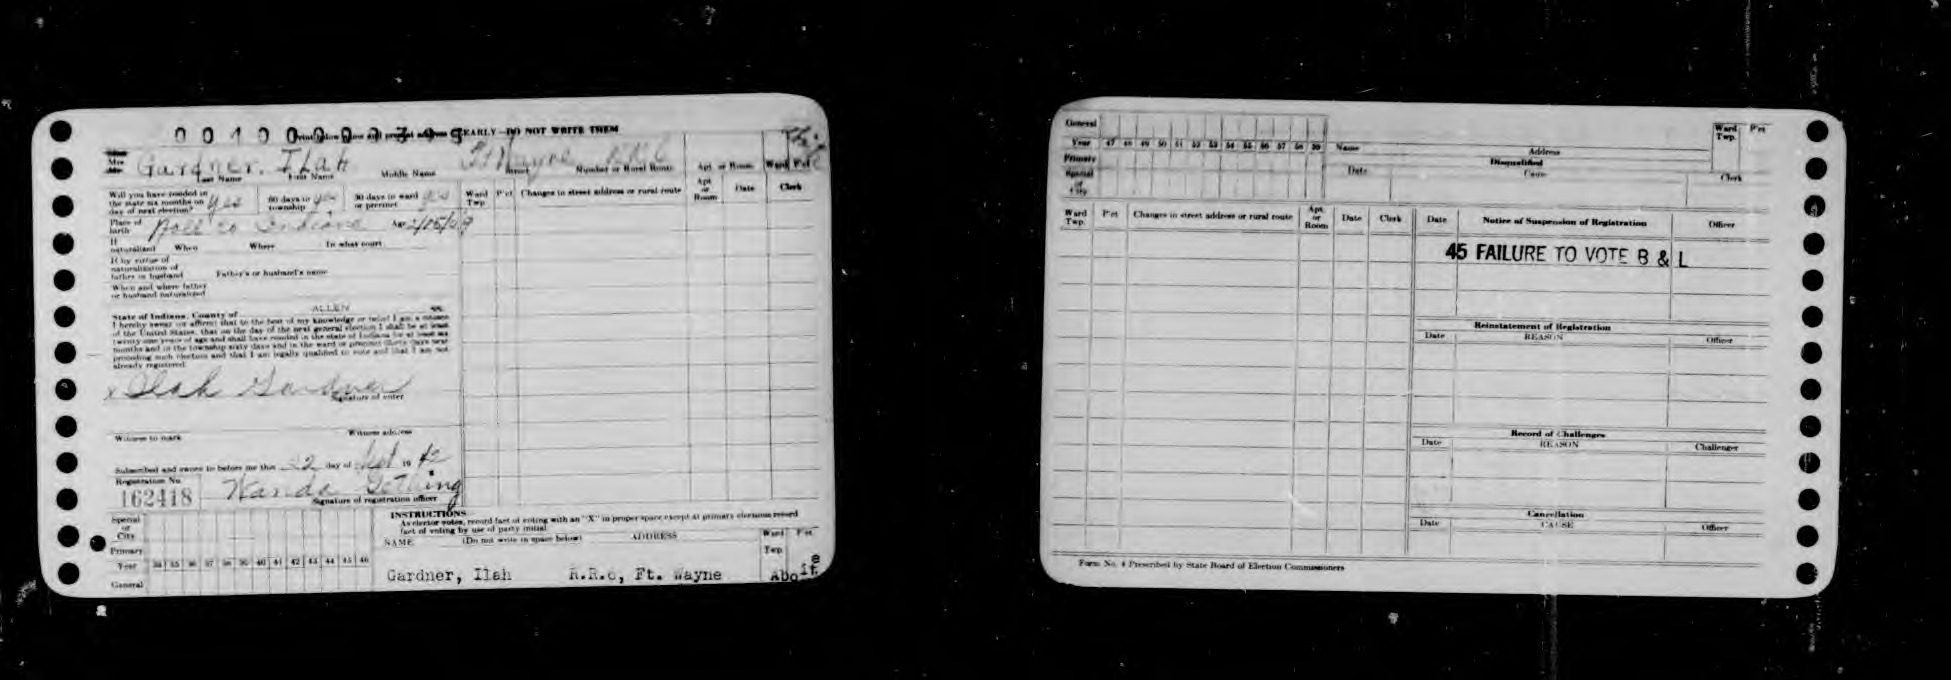 0 0 1 0 0 0 0 0 3 9 5
CLEARLY—DO NOT WRITE THEM
Gardner, Ilah Ft Wayne
Last Name First Name Middle Name Street Number or Rural Route Apt. or Room Ward P'ct
Will you have resided in
the state six months on
day of next election? yes 60 days in
township yes 30 days in ward
or precinct yes
Ward
Twp. P'ct Changes in street address or rural route Apt.
or
Room Date Clerk
Place of
birth Indiana Age
If
naturalized When Where In what court
If by virtue of
naturalization of
father or husband Father's or husband's name
When and where father
or husband naturalized
State of Indiana, County of ALLEN ss.
I hereby swear (or affirm) that to the best of my knowledge or belief I am a citizen
of the United States, that on the day of the next general election I shall be at least
twenty-one years of age and shall have resided in the state of Indiana for at least six
months and in the township sixty days and in the ward or precinct thirty days next
preceding such election and that I am legally qualified to vote and that I am not
already registered.
x Ilah Gardner
Signature of voter
Witness to mark Witness address
Subscribed and sworn to before me this 22 day of Sept 19 42
Registration No.
162418
Wanda
Signature of registration officer
Special
or
City
Primary
Year 34 35 36 37 38 39 40 41 42 43 44 45 46
General
INSTRUCTIONS
As elector votes, record fact of voting with an "X" in proper space except at primary elections record
fact of voting by use of party initial
NAME (Do not write in space below) ADDRESS Ward P'ct
Twp.
Gardner, Ilah R.R.6, Ft. Wayne Aboite
General
Year 47 48 49 50 51 52 53 54 55 56 57 58 59
Primary
Special
or
City
Name Address Ward
Twp. P'ct
Disqualified
Date Cause Clerk
Ward
Twp. P'ct Changes in street address or rural route Apt.
or
Room Date Clerk
Date Notice of Suspension of Registration Officer
45 FAILURE TO VOTE B & L
Reinstatement of Registration
Date REASON Officer
Record of Challenges
Date REASON Challenger
Cancellation
Date CAUSE Officer
Form No. 4 Prescribed by State Board of Election Commissioners